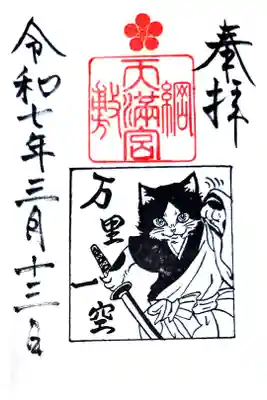 奉拝
綱敷天満宮
万里一空
令和七年三月十三日